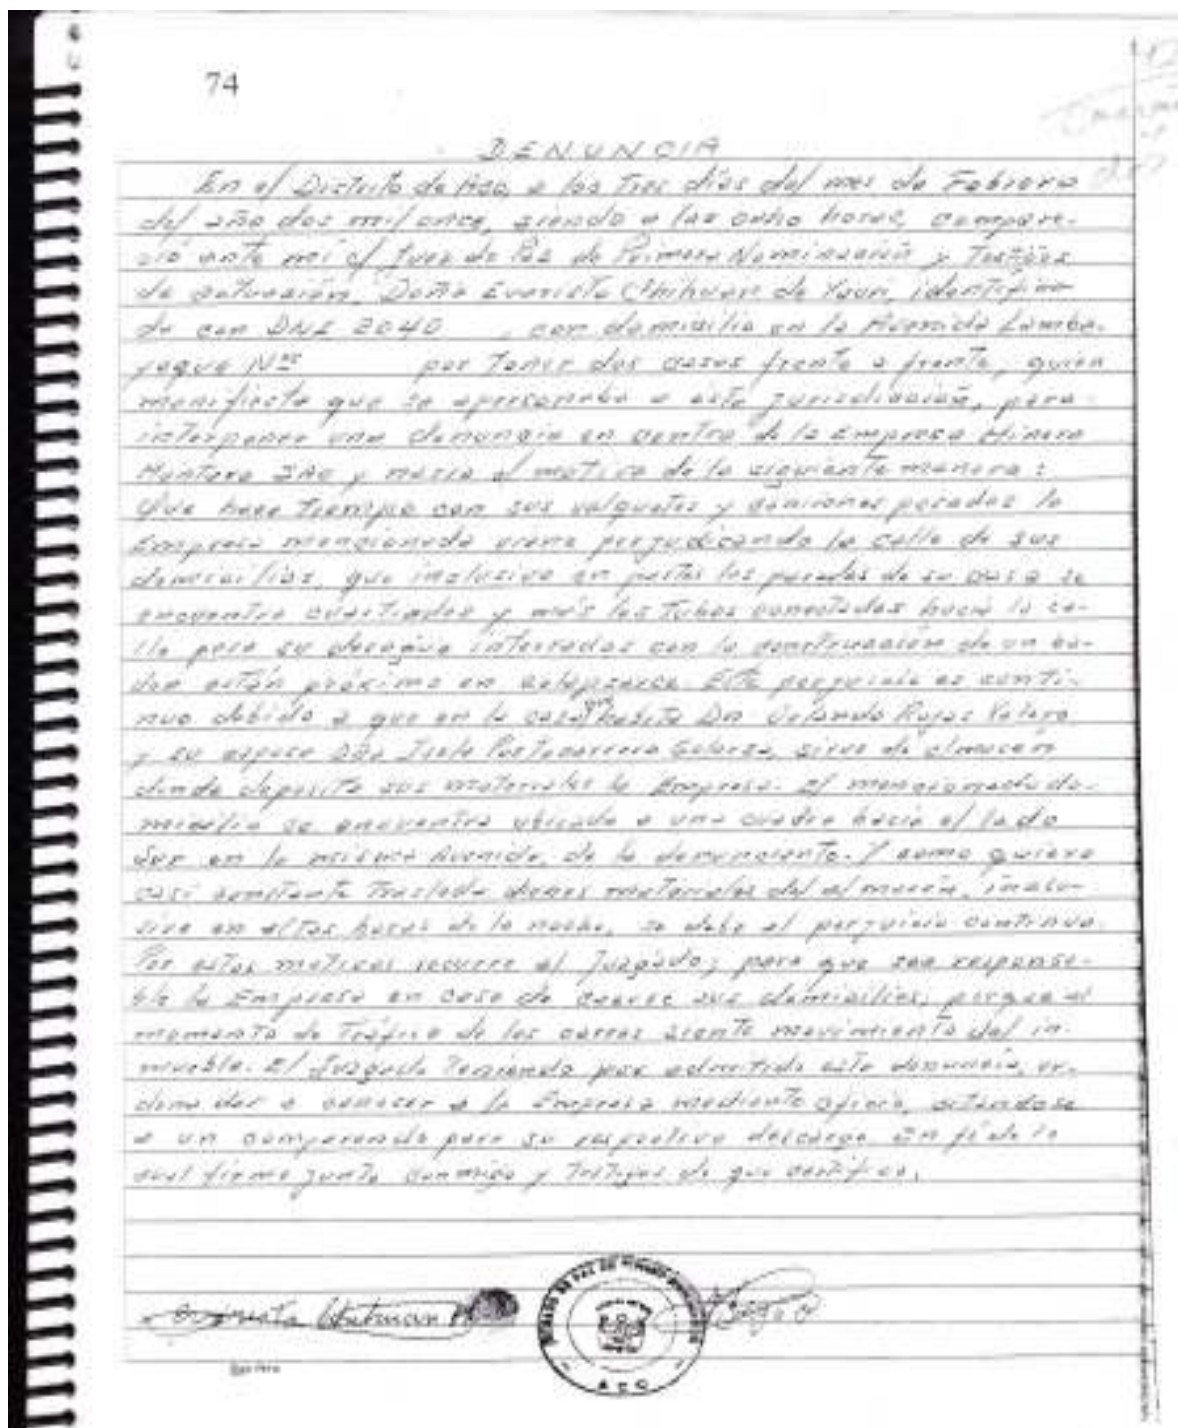 74
DENUNCIA
En el Distrito de Aco, a los Tres días del mes de Febrero
del año dos mil once, siendo a las ocho horas, compare-
ció ante mí el Juez de Paz de Primera Nominación y Testigos
de actuación, Doña Evarista Chihuan de Yaun, identifica
da con DNI 2040 , con domicilio en la Avenida Lamba-
yeque Nº por tener dos casas frente a frente, quien
manifiesta que se apersonaba a esta jurisdicción, para
interponer una denuncia en contra de la Empresa Minera
Mantaro SAC y el motivo de la siguiente manera:
Que hace tiempo con sus volquetes y camiones pesados la
Empresa mencionada viene perjudicando la calle de sus
domicilios, que inclusive en partes las paredes de su casa se
encuentra cuartiadas y más los Tubos conectados hacia la ca-
lle para su desagüe interradas con la construcción de un ba-
den están próximo en colapsarce. Este perjuicio es conti-
nuo debido a que en la casa en habita Dn Orlando Rojas
y su esposa Portocarrero Galarza, sirve de almacén
donde deposita sus materiales la Empresa. El mencionado do-
micilio se encuentra ubicado a una cuadra hacia el lado
Sur en la misma Avenida, de la denunciante. Y como quiera
casi constante Traslada dichos materiales del almacén, inclu-
sive en altas horas de la noche, se debe el perjuicio continuo.
Por estos motivos recurre al Juzgado; para que sea responsa-
ble la Empresa en caso de caerse sus domicilios, porque al
momento de Tráfico de los carros siente movimiento del in-
mueble. El Juzgado Teniendo por admitido esta denuncia, or-
dena dar a conocer a la Empresa mediante oficio, citándose
a un comparendo para su respectivo descargo. En fé de lo
cual firma junto conmigo y Testigos de que certifico.
Evarista Chihuan
JUZGADO DE PAZ DE PRIMERA NOMINACION
ACO